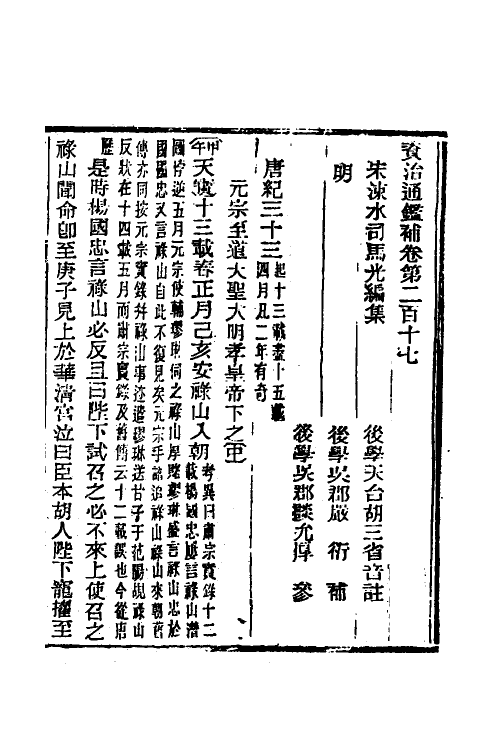 資治通鑑補卷第二百十七
宋涑水司馬光編集
後學天台胡三省音註
明
後學吳郡嚴衍補
後學吳郡談允厚參
唐紀三十三起十三載盡十五載四月凡二年有奇
元宗至道大聖大明孝皇帝下之
甲午天寶十三載春正月己亥安祿山入朝考異曰肅宗實錄十二載楊國忠屢言祿山潛
圖悖逆五月元宗使輔璆琳伺之祿山厚賂璆琳盛言祿山忠於
國國忠又言祿山自此不復見矣元宗手詔追祿山祿山來朝舊
傳亦同按元宗實錄幷祿山事迹遣璆琳送甘子于范陽覘祿山
反狀在十四載五月而肅宗實錄及舊傳云十二載誤也今從唐
歷是時楊國忠言祿山必反且曰陛下試召之必不來上使召之
祿山聞命卽至庚子見上於華淸宮泣曰臣本胡人陛下寵擢至